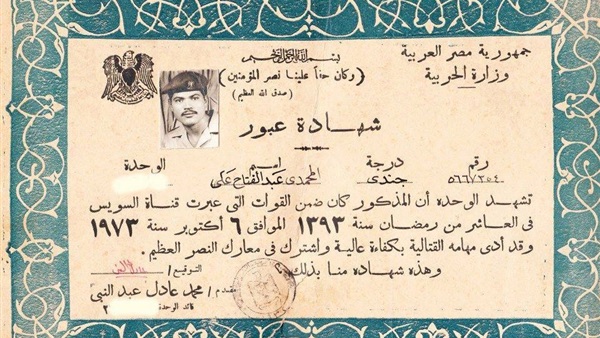 بسم الله الرحمن الرحيم
جمهورية مصر العربية
وزارة الحربية
( وكان حقا علينا نصر المؤمنين )
( صدق الله العظيم )
شهادة عبور
رقم درجة اسم الوحدة
٥٦٦٧٣٥٤ جندى المحمدى عبد الفتاح على
تشهد الوحدة أن المذكور كان ضمن القوات التى عبرت قناة السويس
فى العاشر من رمضان سنة ١٣٩٣ الموافق ٦ أكتوبر سنة ١٩٧٣
وقد أدى مهامه القتالية بكفاءة عالية واشترك فى معارك النصر العظيم .
وهذه شهادة منا بذلك ،
التوقيع /
مقدم / محمد عادل عبد النبى
قائد الوحدة